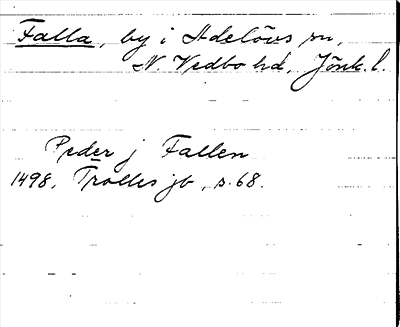 Falla, by i Adelövs sn,
N. Vedbo hd, Jönk. l.
Peder j Fallen
1498, Trolles jb, s. 68.